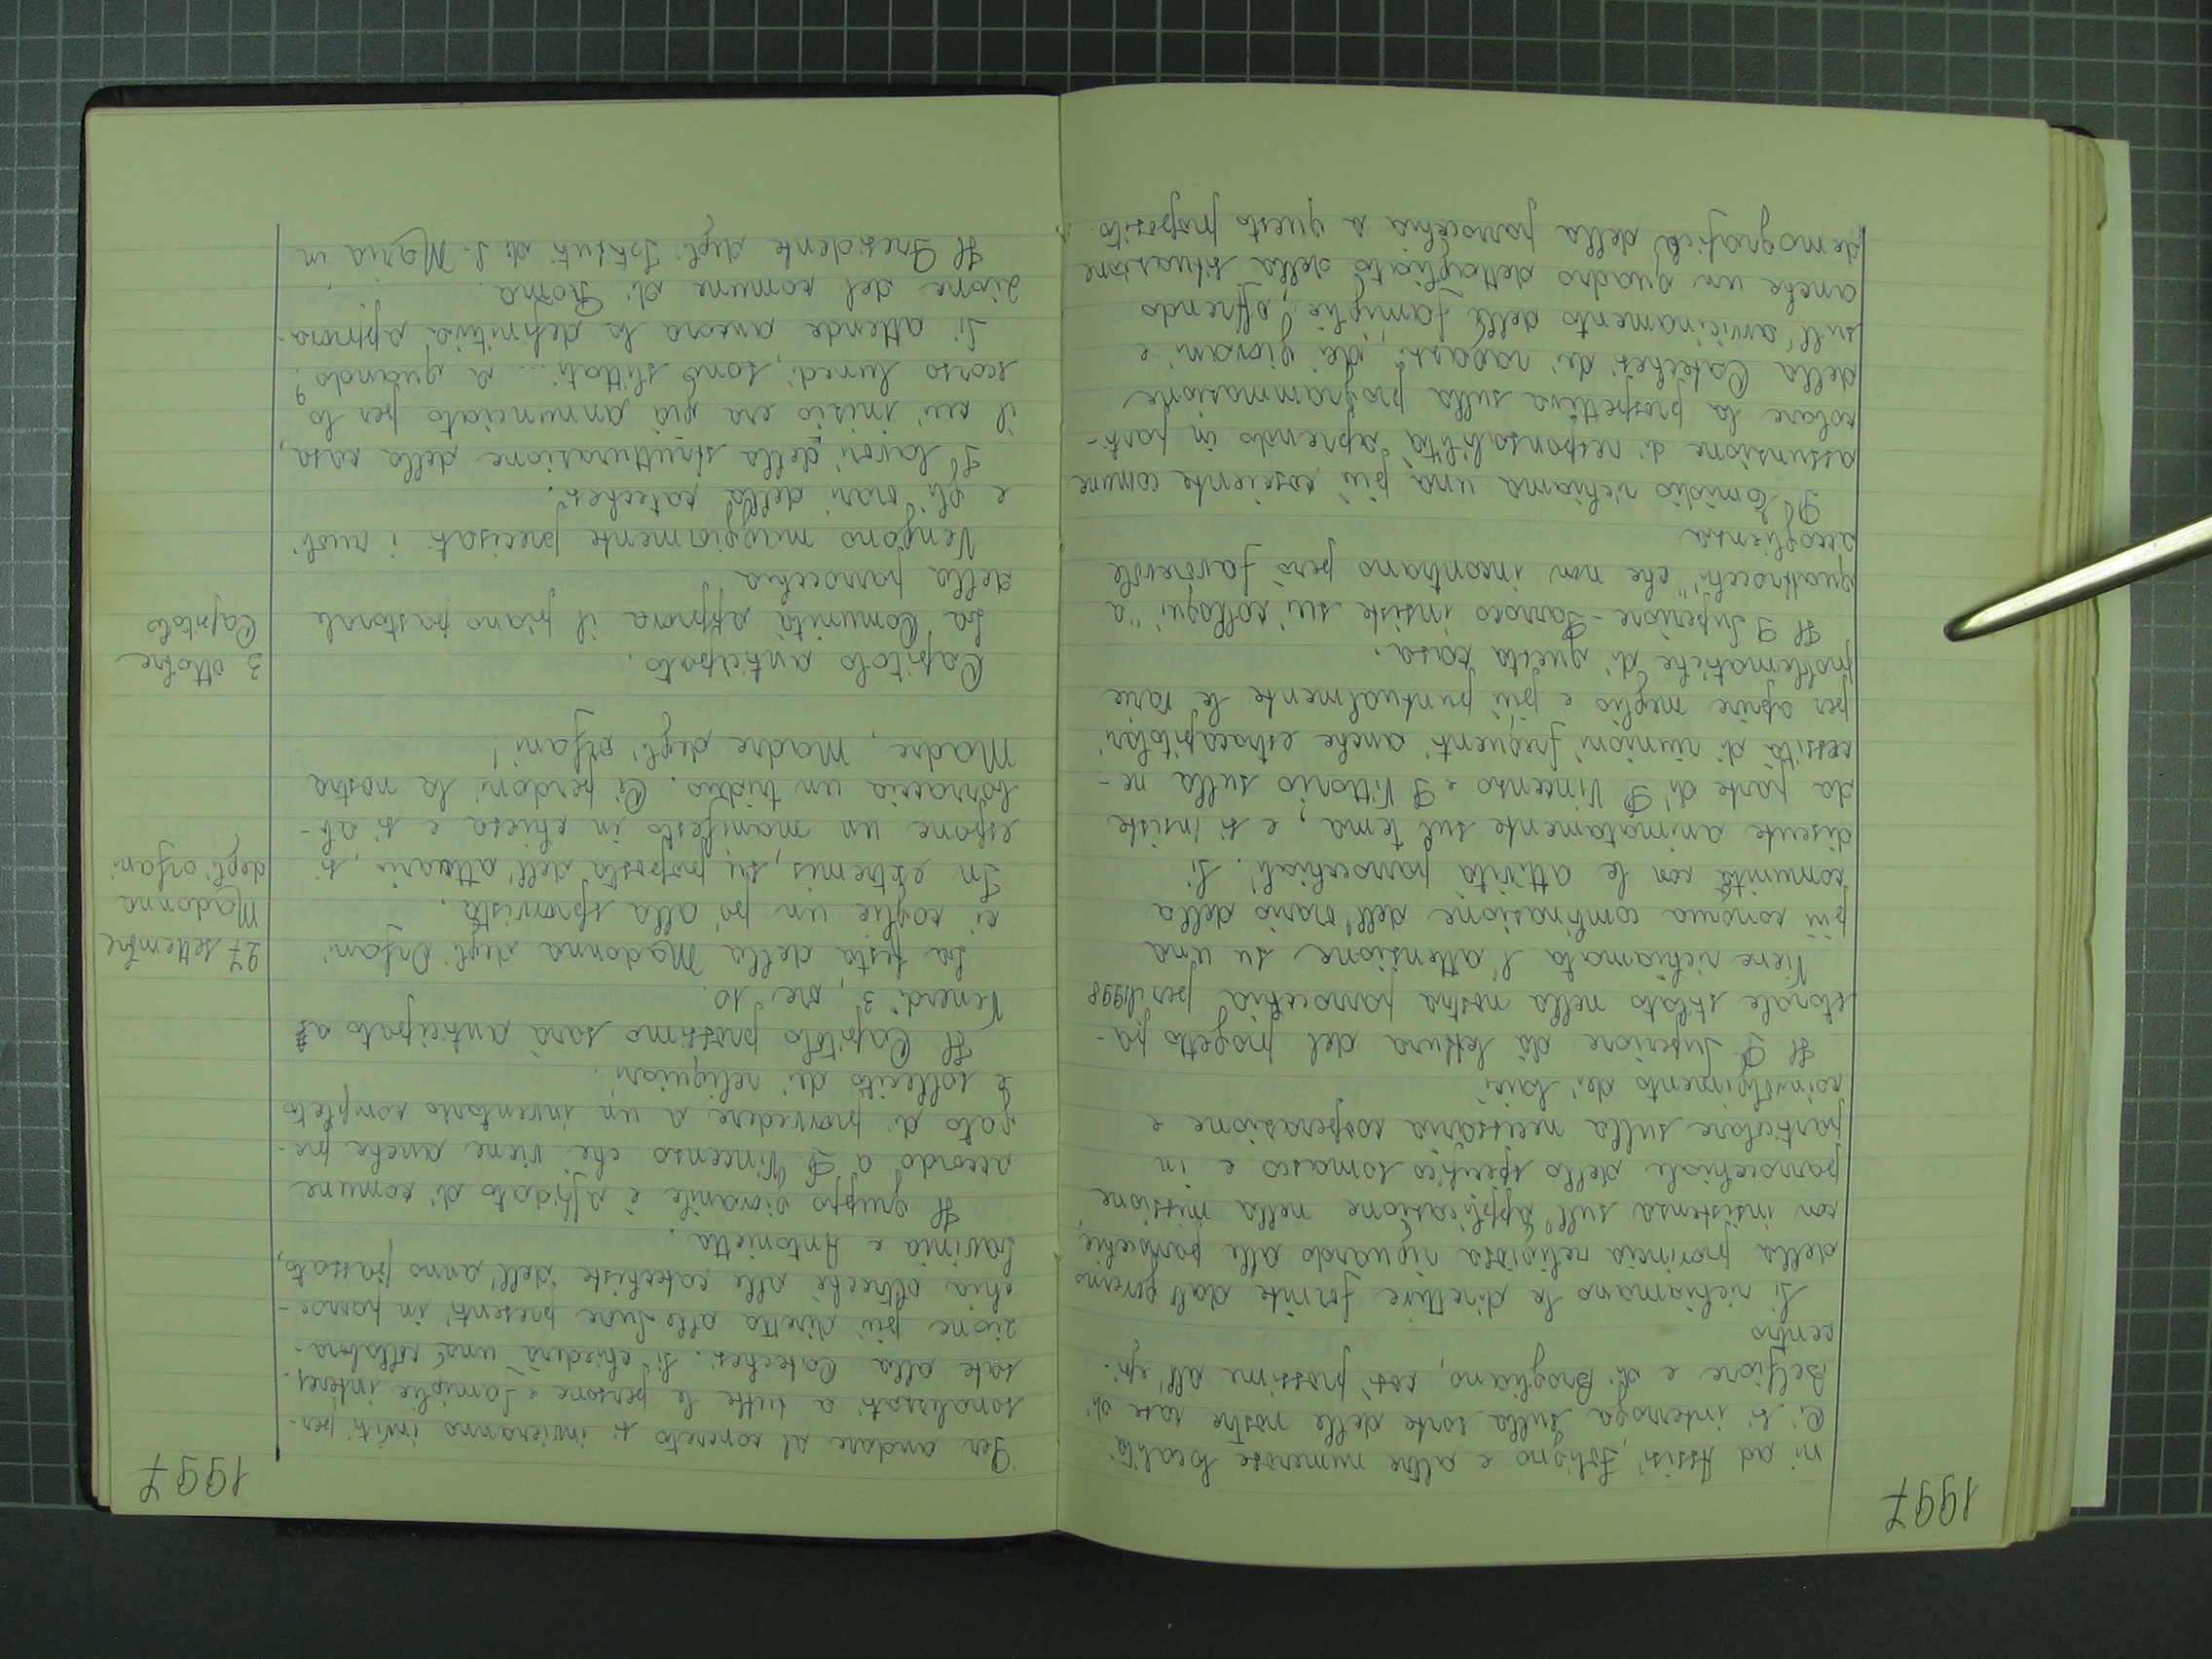 1997
ni ad Assisi, Foligno e altre numerose località.
Ci si interroga sulla sorte delle nostre case di
Belfiore e di Brogliano, così prossime all'epi-
centro
Si richiamano le direttive fornite dal governo
della provincia religiosa riguardo alle parrocchie,
con insistenza sull'applicazione nella missione
parrocchiale dello specifico somasco e in
particolare sulla necessaria cooperazione e
coinvolgimento dei laici
Il P. Superiore dà lettura del progetto pa-
storale stilato nella nostra parrocchia per il 1998
Viene richiamata l'attenzione su una
più consona combinazione dell'orario della
comunità con le attività parrocchiali. Si
discute animatamente sul tema, e si insiste
da parte di P Vincenzo e P Vittorio sulla ne-
cessità di riunioni frequenti anche extracapitolari
per aprire meglio e più puntualmente le varie
problematiche di questa casa.
Il P Superiore-Parroco insiste sui colloqui "a
quattrocchi", che non incontrano però favorevole
accoglienza
P Emidio richiama una più cosciente comune
assunzione di responsabilità aprendo in parti-
colare la prospettiva sulla programmazione
della Catechesi dei ragazzi, dei giovani e
sull'avvicinamento delle famiglie, offrendo
anche un quadro dettagliato della situazione
demografica della parrocchia a questo proposito.
1997
Per andare al concreto si invieranno inviti per-
sonalizzati a tutte le persone e famiglie interes-
sate alla Catechesi. Si chiederà una collabora-
zione più diretta alle Suore presenti in parroc-
chia oltreché alle catechiste dell'anno passato,
Lavinia e Antonietta.
Il gruppo giovanile è affidato di comune
accordo a P Vincenzo che viene anche pre-
gato di provvedere a un inventario completo
e sollecito dei reliquiari.
Il Capitolo prossimo sarà anticipato a
Venerdì 3, ore 10.
27 settembre
Madonna
degli orfani
La festa della Madonna degli Orfani
ci coglie un pò alla sprovvista.
In extremis, su proposta dell'attuario, si
espone un manifesto in chiesa e si ab-
borraccia un triduo. Ci perdoni la nostra
Madre, Madre degli orfani!
3 ottobre
Capitolo
Capitolo anticipato.
La Comunità approva il piano pastorale
della parrocchia
Vengono maggiormente precisati i ruoli
e gli orari della catechesi.
I lavori della strutturazione della casa,
il cui inizio era già annunciato per lo
scorso lunedì, sono slittati ... a quando?
Si attende ancora la definitiva approva-
zione del comune di Roma.
Il Presidente degli Istituti di S. Maria in